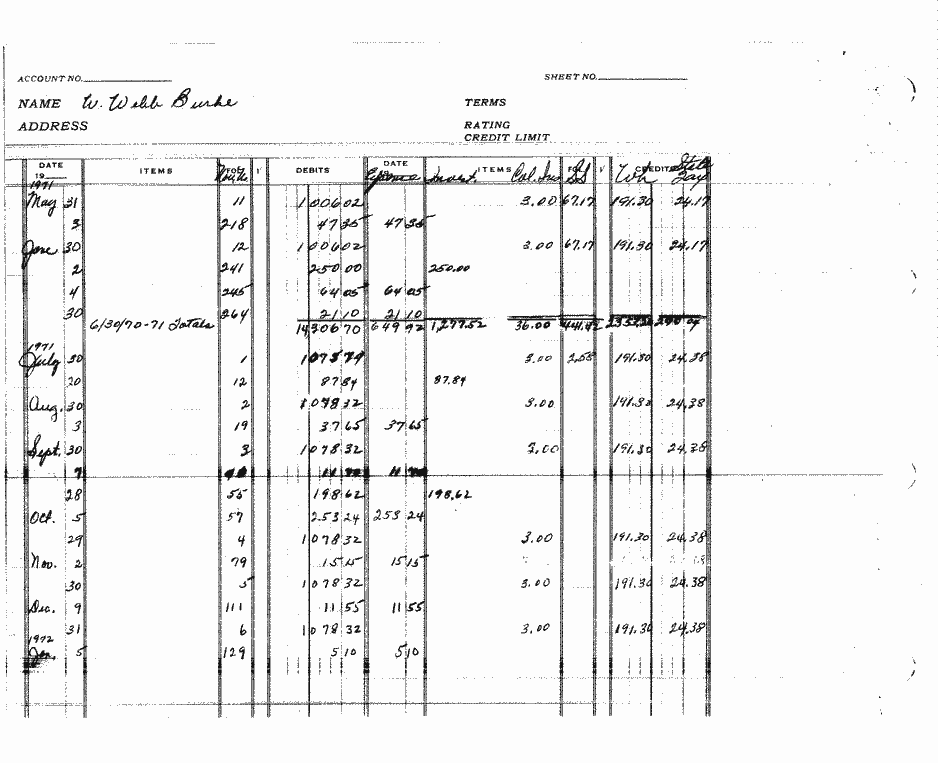 ACCOUNT NO. SHEET NO.
NAME W. Webb Burke TERMS
ADDRESS RATING
CREDIT LIMIT
DATE ITEMS FOL. √ DEBITS DATE ITEMS FOL. √ CREDITS
19 Expense Invest. Col. Ins SS Wh State Tax
1971
May 31 11 1006 02 3.00 67.17 191.30 24.17
3 218 47 35 47 35
June 30 12 1006 02 3.00 67.17 191.30 24.17
2 241 250 00 250.00
4 245 64 05 64 05
30 264 21 10 21 10
6/30/70-71 Totals 14,306 70 649 92 1,277.52 36.00
1971
July 30 1 3.00 2.58 191.30 24.38
20 12 87 84 87.84
Aug. 30 2 1078 32 3.00 191.30 24.38
3 19 37 65 37 65
Sept. 30 3 1078 32 3.00 191.30 24.38
7
28 55 198 62 198.62
Oct. 5 57 253 24 253 24
29 4 1078 32 3.00 191.30 24.38
Nov. 2 79 15 15 15 15
30 5 1078 32 3.00 191.30 24.38
Dec. 9 111 11 55 11 55
31 6 1078 32 3.00 191.30 24.38
1972
Jan. 5 129 5 10 5 10